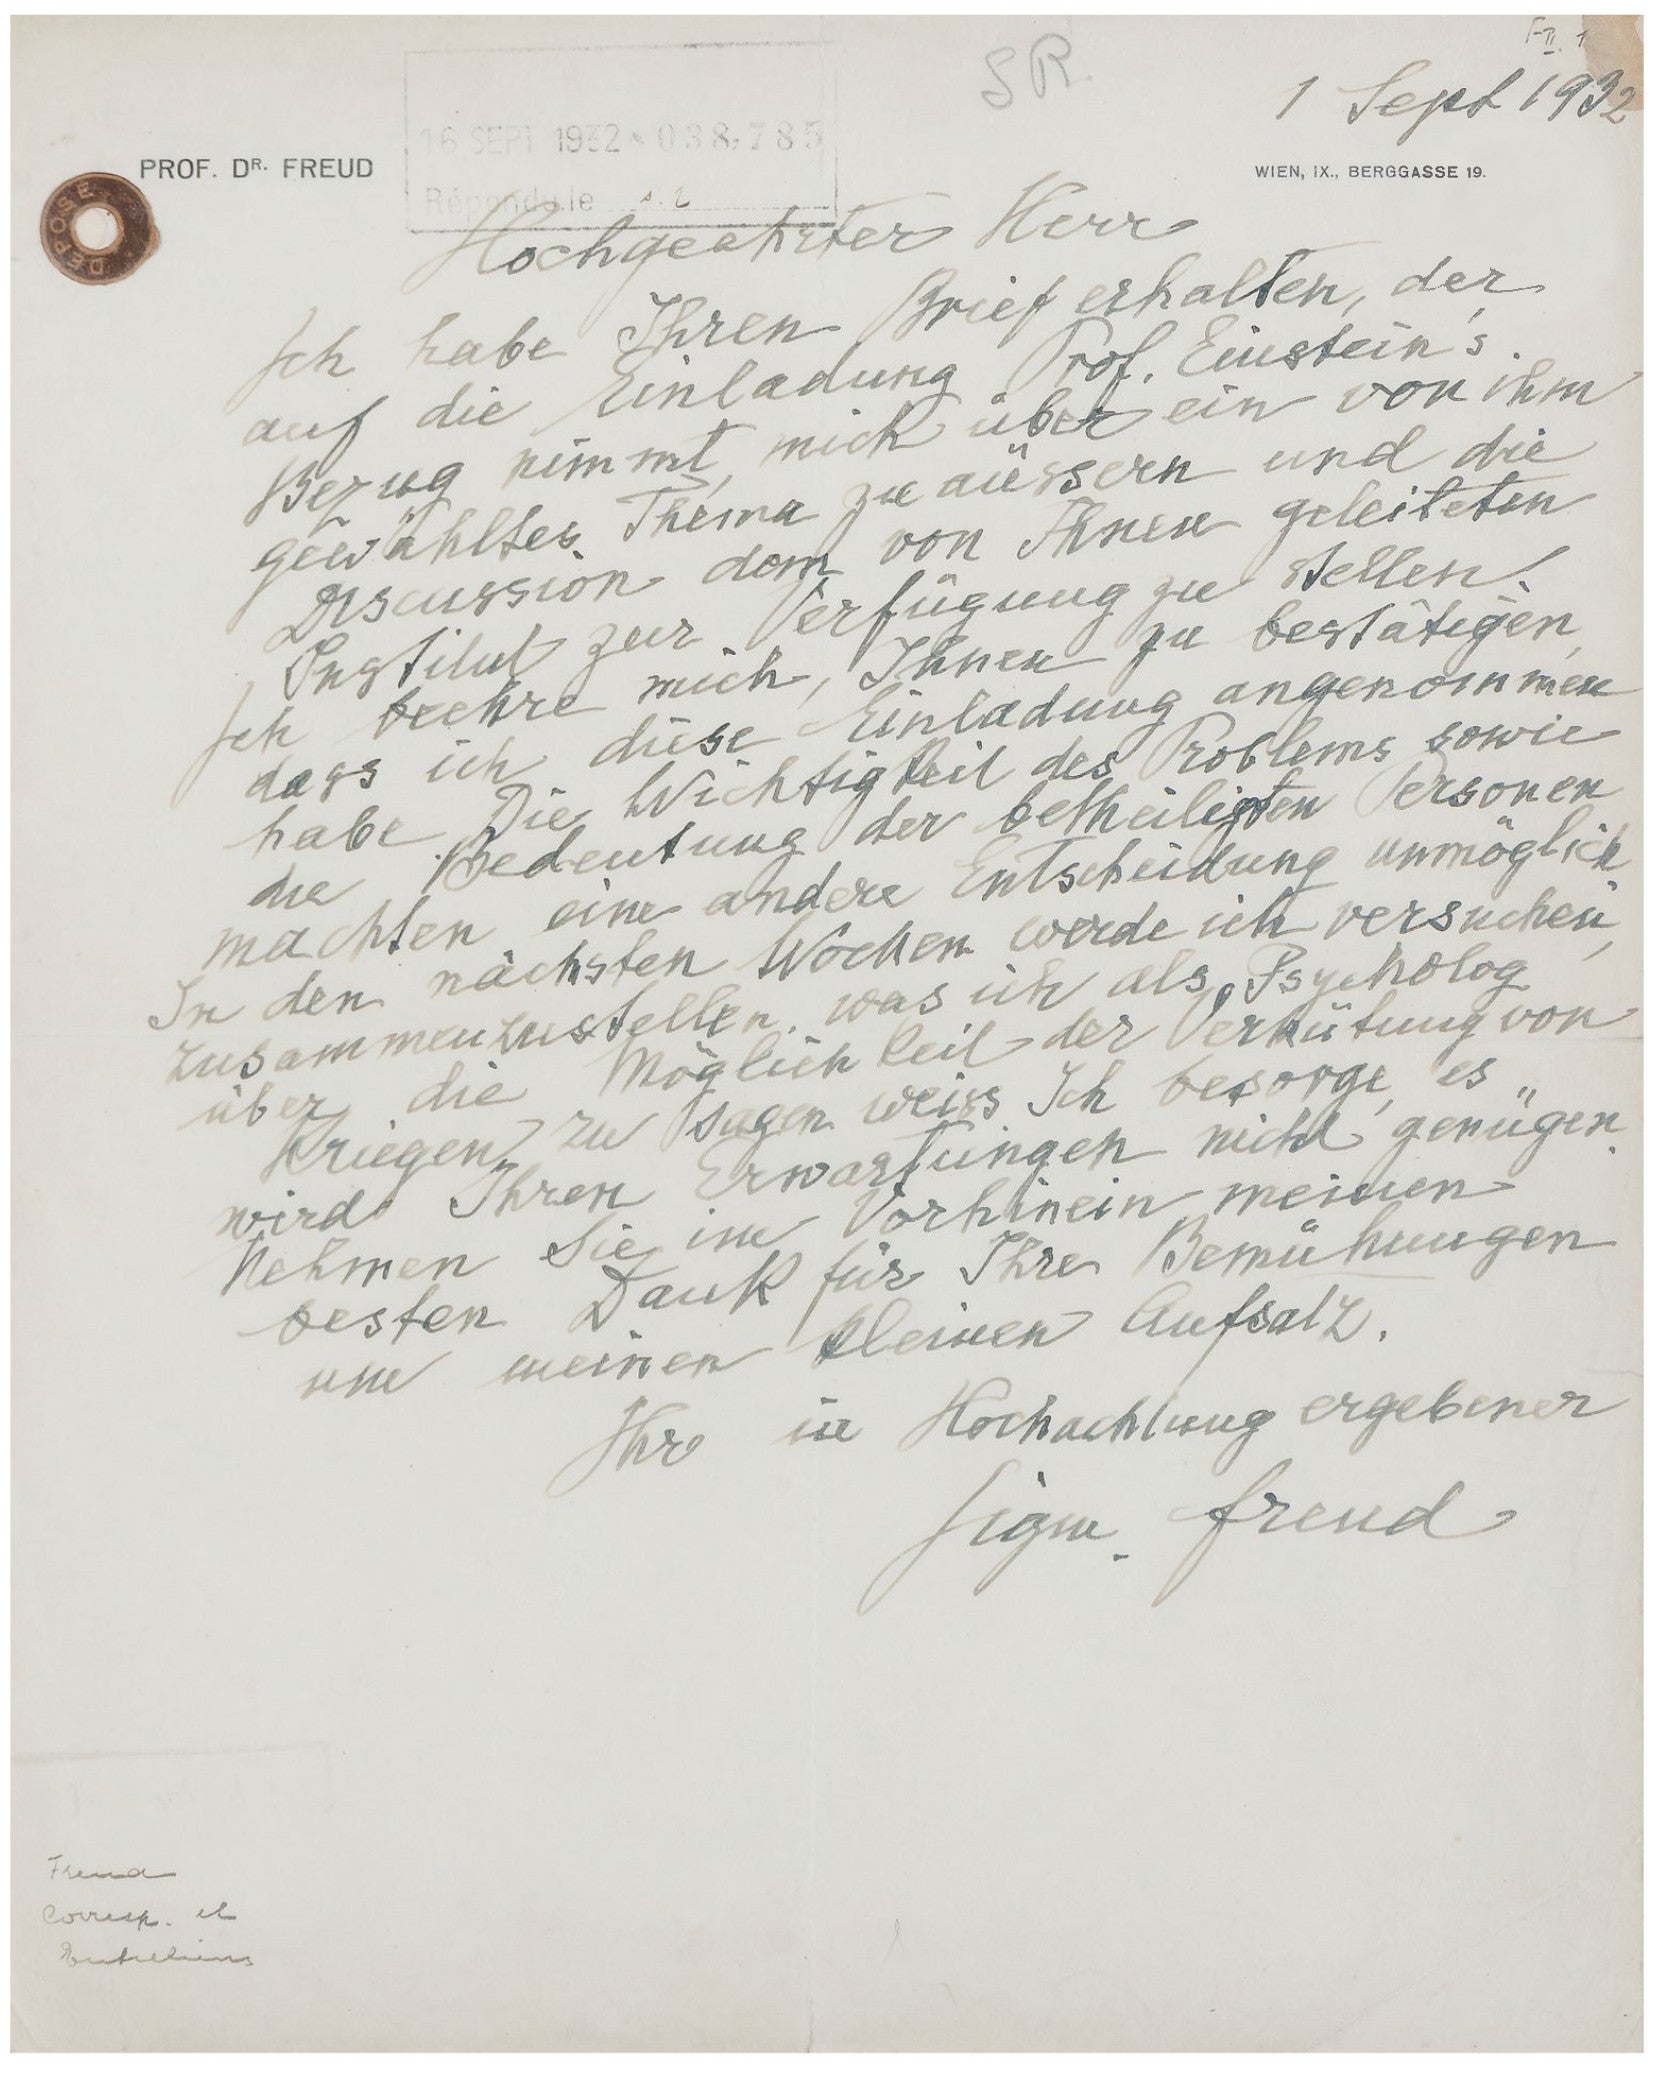 SR.
1 Sept 1932
16 SEPT 1932 038,785
Répondu le
PROF. DR. FREUD
WIEN, IX., BERGGASSE 19.
DEPOSE
Hochgeehrter Herr
Ich habe Ihren Brief erhalten, der,
auf die Einladung Prof. Einstein's
Bezug nimmt, mich über ein von ihm
gewähltes Thema zu äussern und die
Discussion dem von Ihnen geleiteten
Institut zur Verfügung zu stellen.
Ich beehre mich, Ihnen zu bestätigen,
dass ich diese Einladung angenommen
habe. Die Wichtigkeit des Problems sowie
die Bedeutung der betheiligten Personen
machten eine andere Entscheidung unmöglich
In den nächsten Wochen werde ich versuchen,
zusammenzustellen, was ich als Psycholog
über die Möglichkeit der Verhütung von
Kriegen zu sagen weiss Ich besorge, es
wird Ihren Erwartungen nicht genügen.
Nehmen Sie im Vorhinein meinen
besten Dank für Ihre Bemühungen
um meinen kleinen Aufsatz.
Ihr in Hochachtung ergebener
Sigm. Freud
Freud
Corresp. et
Entretiens